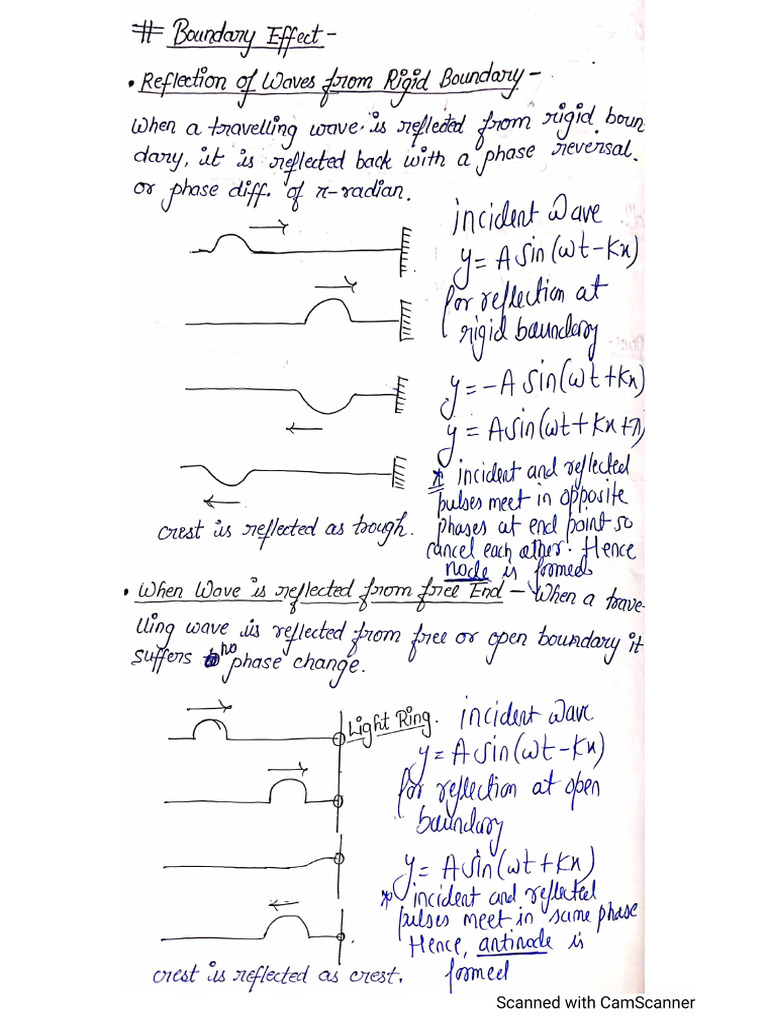 # Boundary Effect -
• Reflection of Waves from Rigid Boundary -
When a travelling wave is reflected from rigid boun
dary, it is reflected back with a phase reversal.
or phase diff. of π-radian.
incident Wave
y = A sin (ωt - Kx)
for reflection at
rigid boundary
y = -A sin(ωt + Kx)
y = A sin(ωt + Kx + π)
* incident and reflected
pulses meet in opposite
phases at end point so
cancel each other. Hence
node is formed
crest is reflected as trough.
• When Wave is reflected from free End - When a trave-
lling wave is reflected from free or open boundary it
suffers no phase change.
Light Ring.
incident Wave
y = A sin (ωt - Kx)
for reflection at open
boundary
y = A sin (ωt + Kx)
* incident and reflected
pulses meet in same phase
Hence, antinode is
formed
crest is reflected as crest.
Scanned with CamScanner